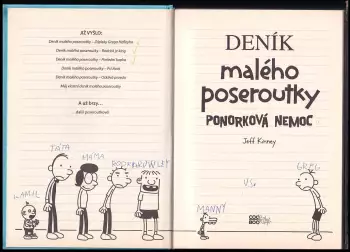 AŽ VYŠLO:
Deník malého poseroutky – Zápisky Grega Heffleyho
Deník malého poseroutky – Rodrick je king
Deník malého poseroutky – Poslední kapka
Deník malého poseroutky – Psí život
Deník malého poseroutky – Ošklivá pravda
Můj vlastní deník malého poseroutky
A už brzy...
další poseroutkoviny
TÁTA
MÁMA
RODRICK
KAREL
DENÍK
malého
poseroutky
PONORKOVÁ NEMOC
Jeff Kinney
GREG
MANNY
COO
BOO